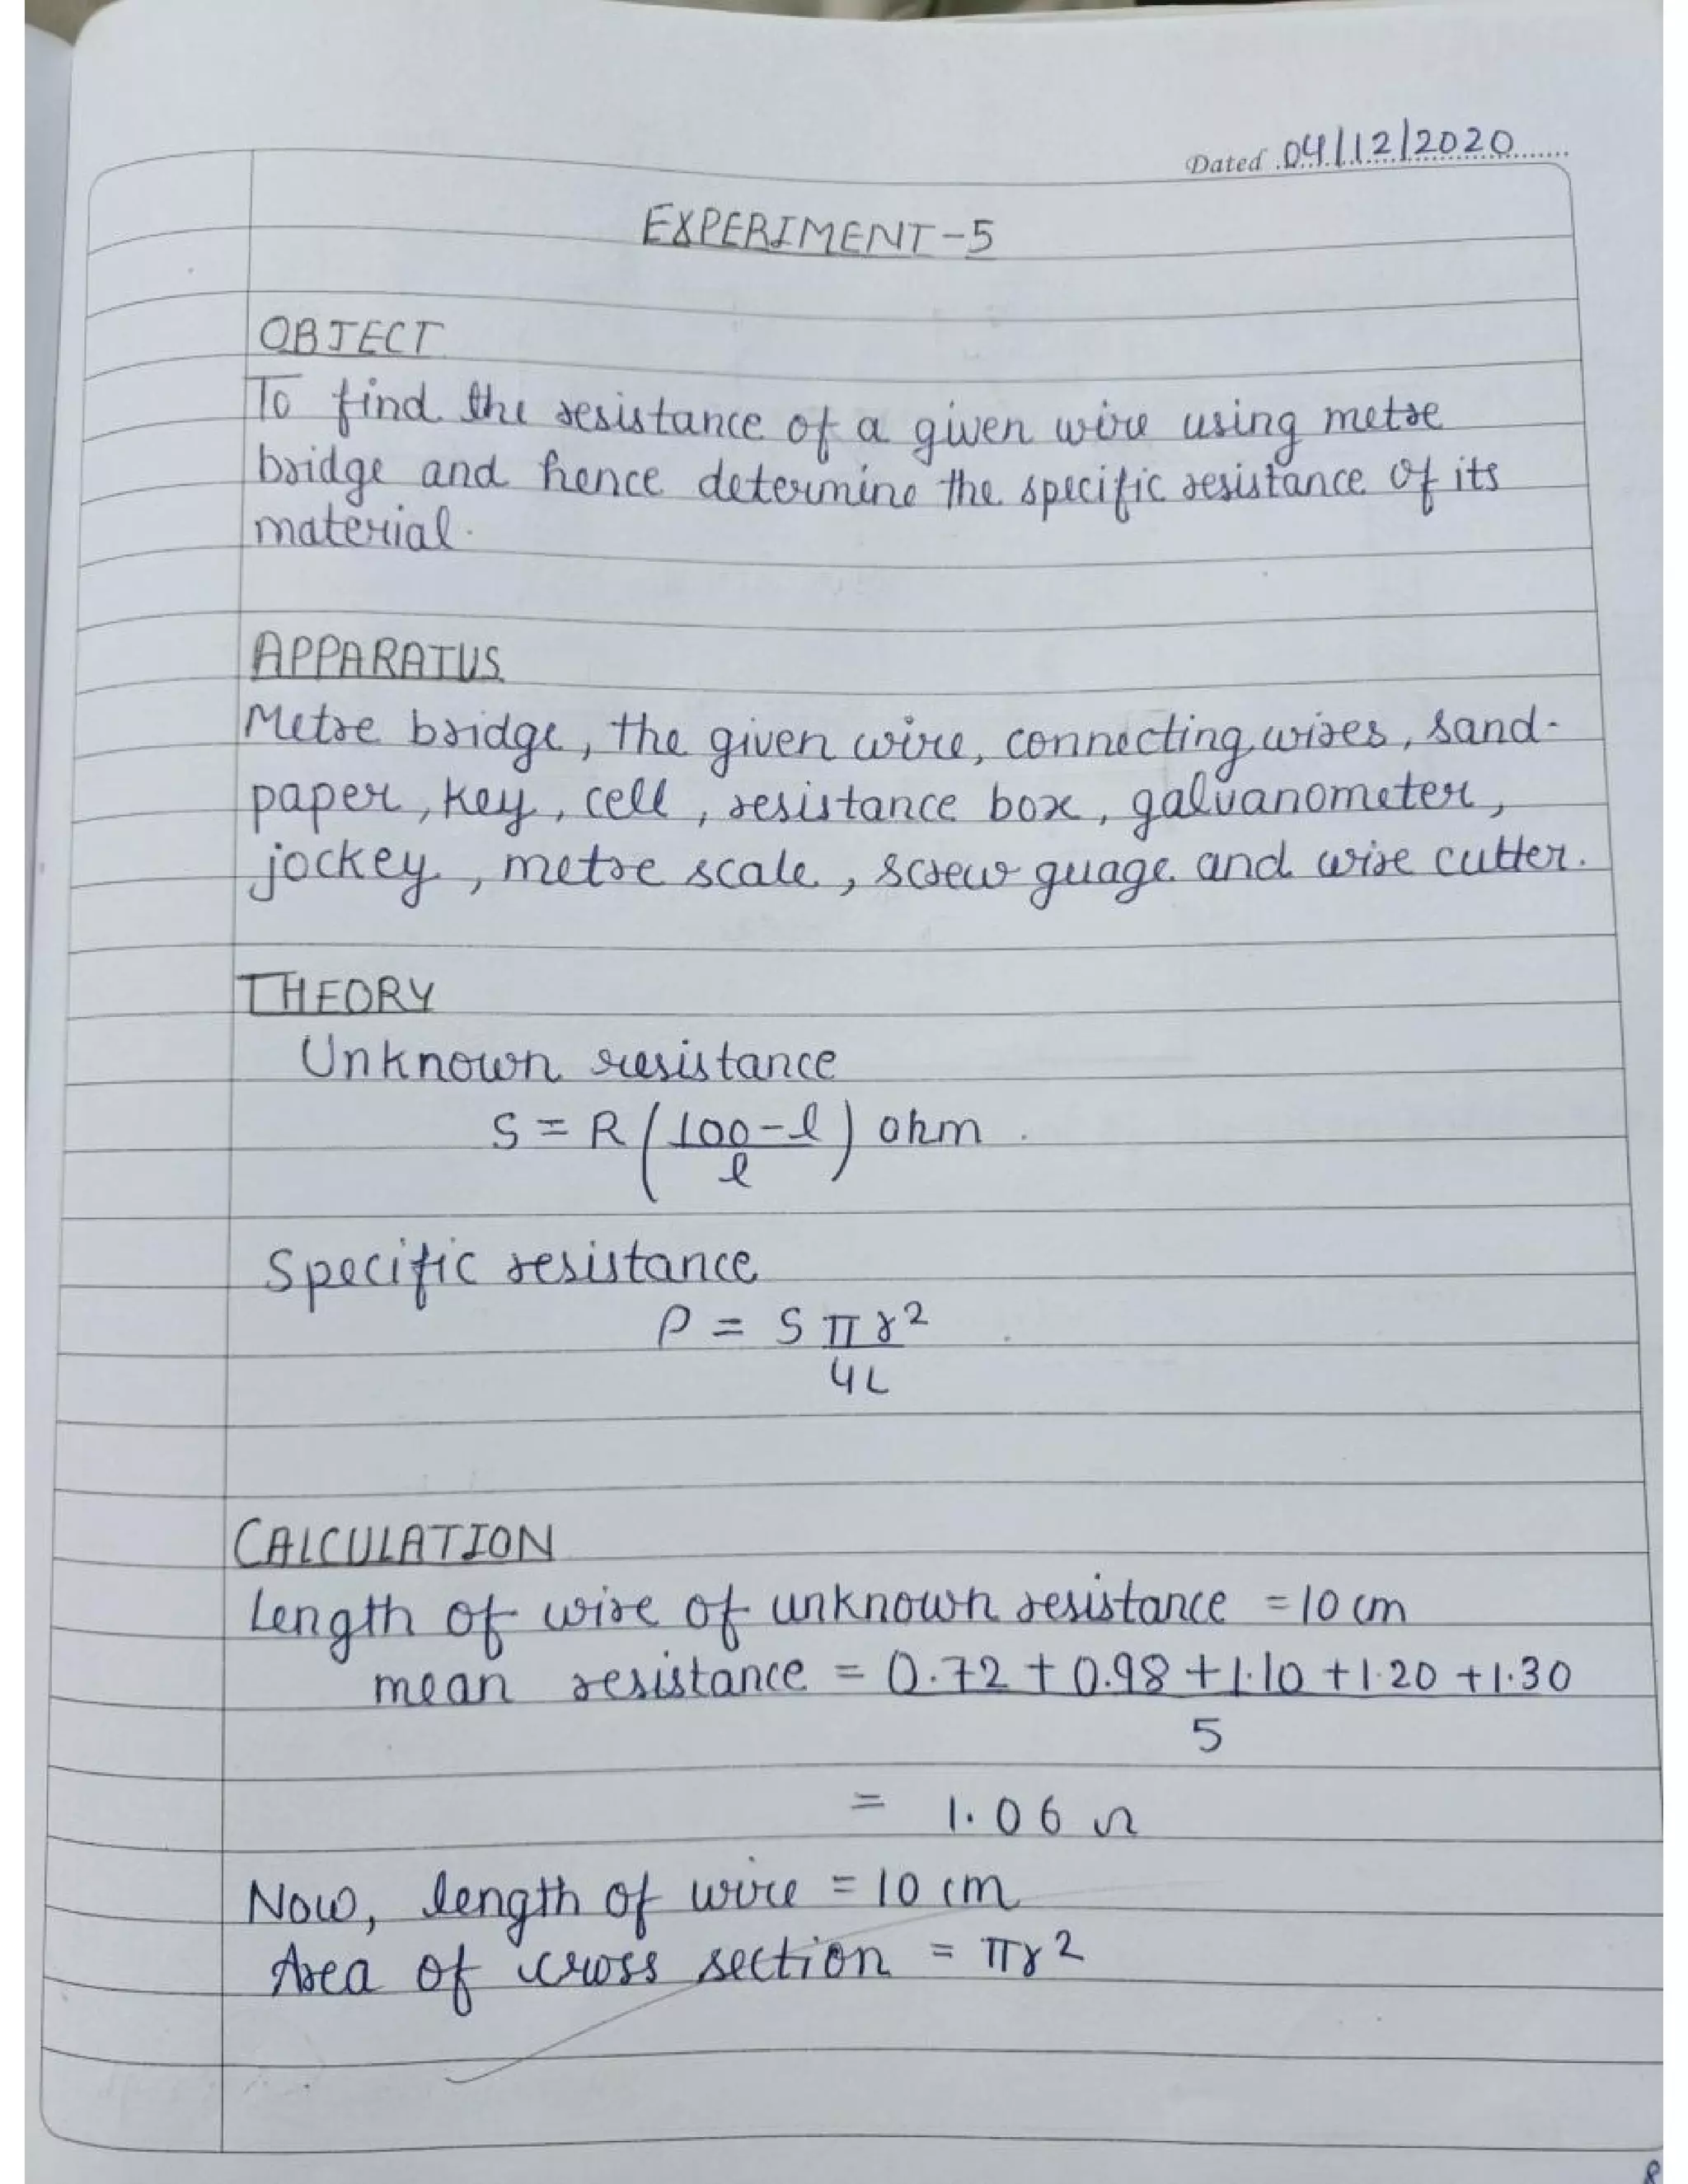 Dated 04/12/2020
EXPERIMENT-5
OBJECT
To find the resistance of a given wire using metre
bridge and hence determine the specific resistance of its
material.
APPARATUS
Metre bridge, the given wire, connecting wires, sand-
paper, key, cell, resistance box, galvanometer,
jockey, metre scale, screw guage and wire cutter.
THEORY
Unknown resistance
S = R (100-l) ohm
l
Specific resistance
ρ = S π r²
4L
CALCULATION
Length of wire of unknown resistance = 10 cm
mean resistance = 0.72 + 0.98 + 1.10 + 1.20 + 1.30
5
= 1.06 Ω
Now, length of wire = 10 cm
Area of cross section = πr²
8